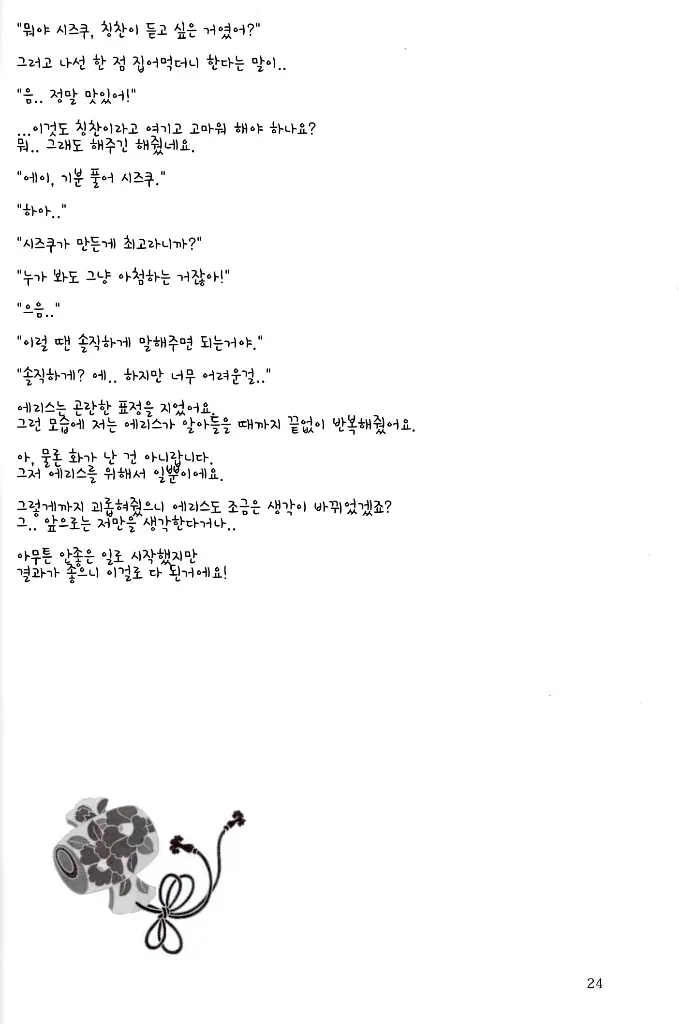 "뭐야 시즈쿠, 칭찬이 듣고 싶은 거였어?"
그러고 나선 한 점 집어먹더니 한다는 말이..
"음.. 정말 맛있어!"
...이것도 칭찬이라고 여기고 고마워 해야 하나요?
뭐.. 그래도 해주긴 해줬네요.
"에이, 기분 풀어 시즈쿠."
"하아.."
"시즈쿠가 만든게 최고라니까?"
"누가 봐도 그냥 아첨하는 거잖아!"
"으음.."
"이럴 땐 솔직하게 말해주면 되는거야."
"솔직하게? 에.. 하지만 너무 어려운걸.."
에리스는 곤란한 표정을 지었어요.
그런 모습에 저는 에리스가 알아들을 때까지 끝없이 반복해줬어요.
아, 물론 화가 난 건 아니랍니다.
그저 에리스를 위해서 일뿐이에요.
그렇게까지 괴롭혀줬으니 에리스도 조금은 생각이 바뀌었겠죠?
그.. 앞으로는 저만을 생각한다거나..
아무튼 안좋은 일로 시작했지만
결과가 좋으니 이걸로 다 된거에요!
24